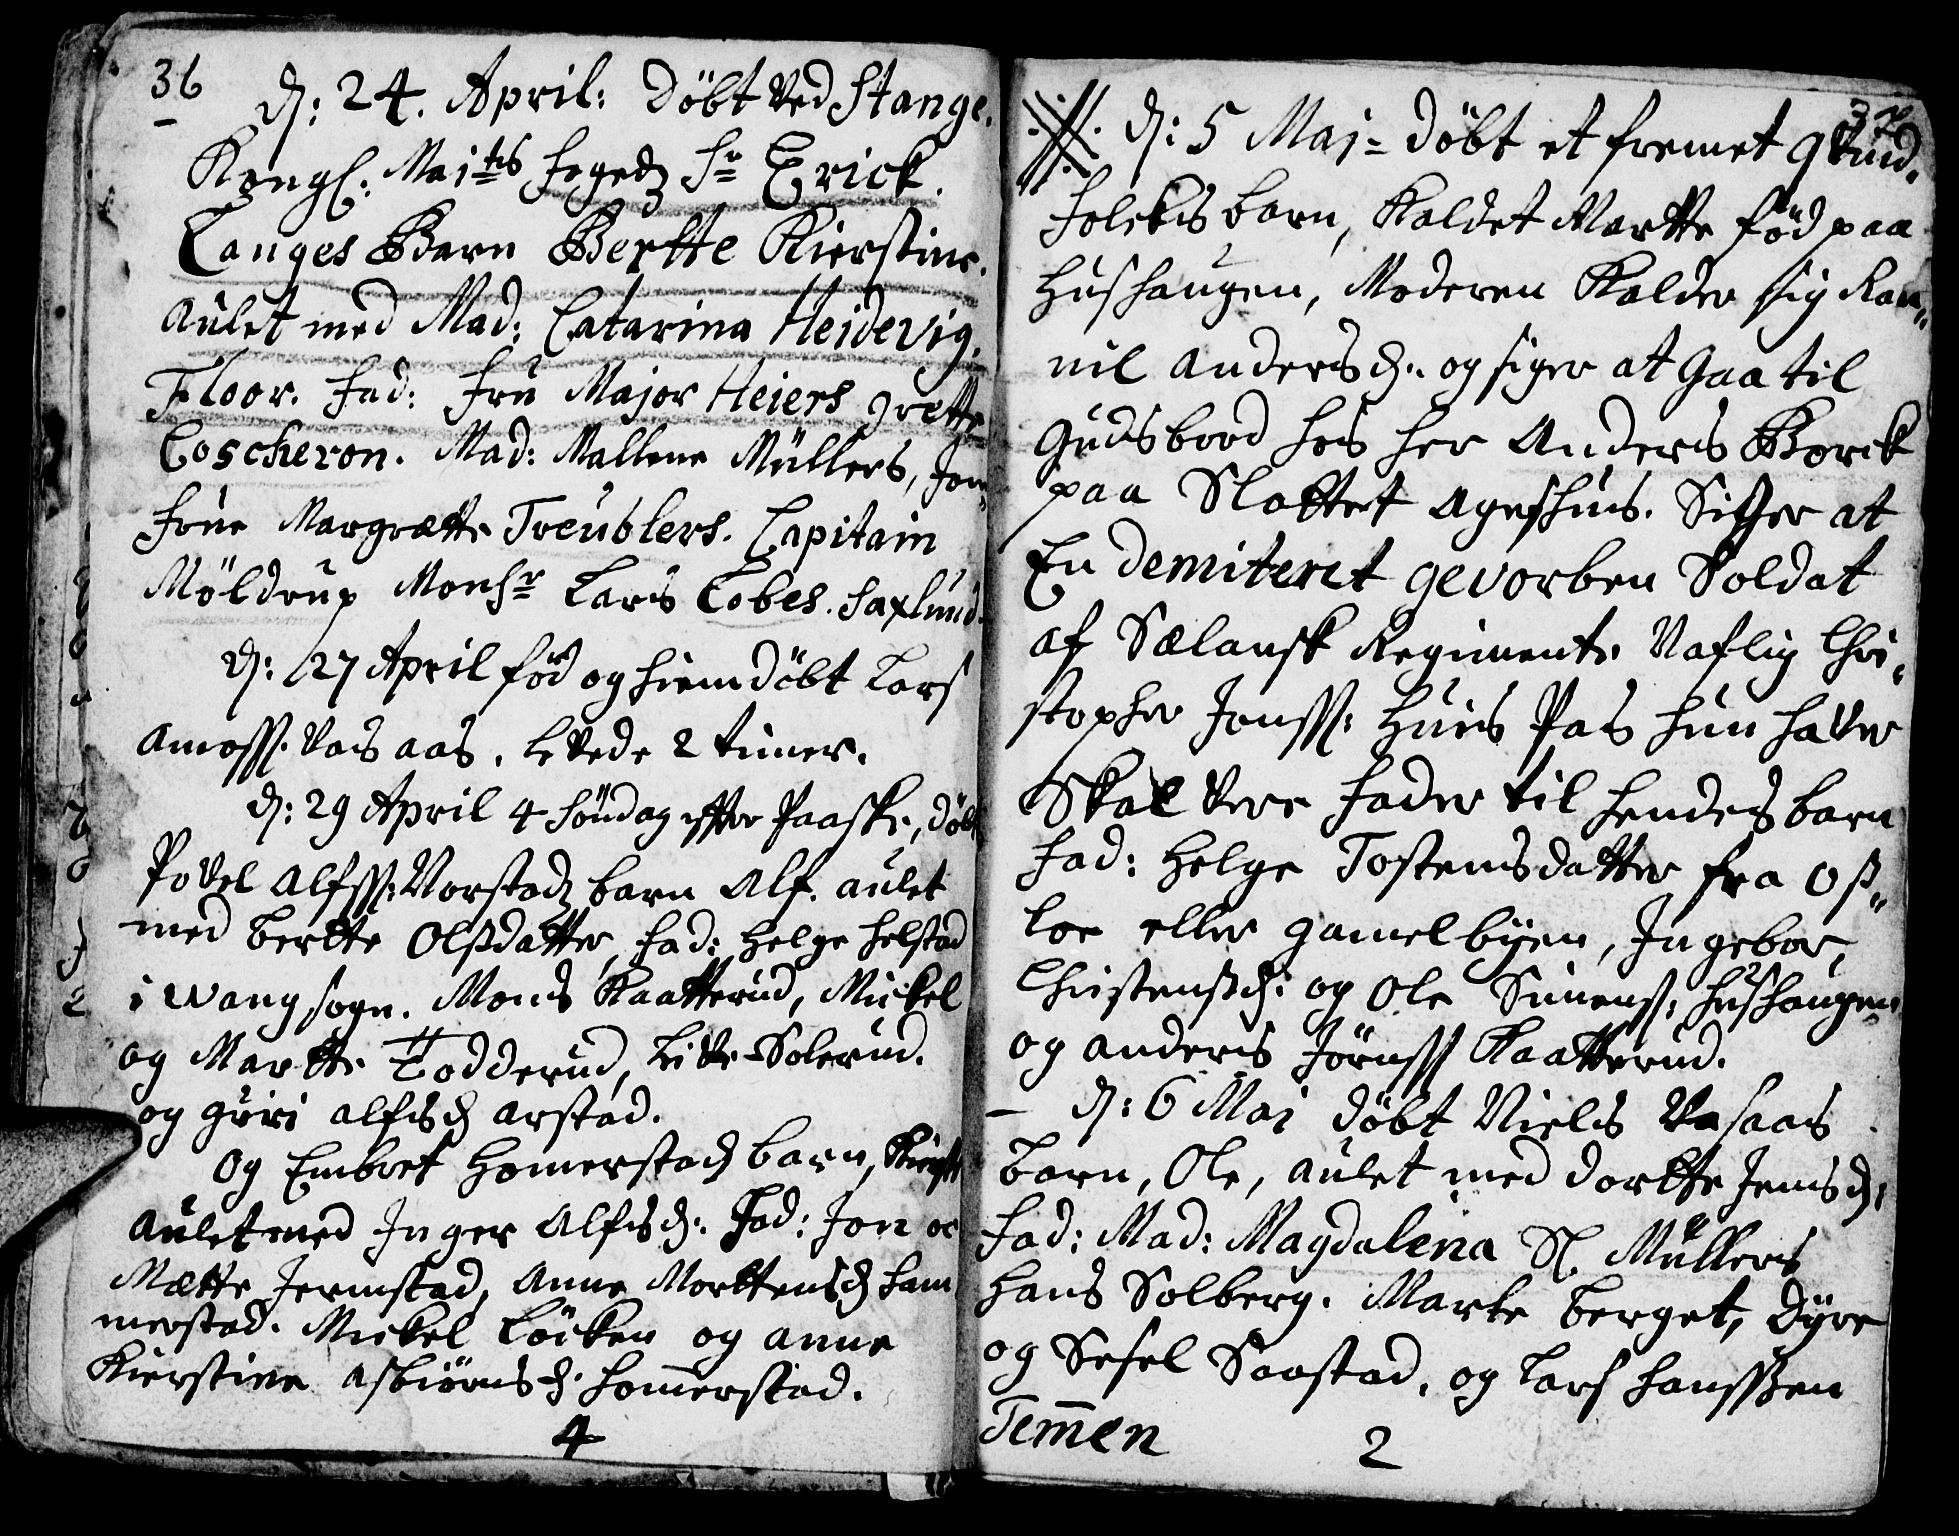 36
d: 24. April: Döbt ved Stange.
Kongl: Maj:ts foged Sr Erick.
Langes Barn Berthe Kierstine.
aulet med Mad: Catarina Heidevig.
Floor. fad: fru Major Heiers Grette
Coscheron. Mad: Mallene Müllers, Jom„
frue Margrætte Treublers. Capitain
Möldrup Monsr Lars Cobes. Saxlund.
d: 27 April föd og hiemdöbt Lars
Amosss. Vas aas. levede 2 timer.
d: 29 April 4 Söndag efter Paaske, döbt
Povel Alfsss: Norstad barn Alf. aulet
med Berthe Olsdatter, fad: Helge Helstad
i Wang sogn. Mons Kaatterud, Mickel
og Marthe Todderud, Live Solerud.
og Guri Alfisd Arstad.
Og Embret Homerstad barn, Kirst
aulet med Inger Alfisd. Fad: Jon oc
Mætte Jermstad, Anne Morttensd Ham
merstad. Mickel Löcken og Anne
Kierstine Asbiörns d. Homerstad.
4
37
d: 5 Maj = döbt et fremet qvind„
folckis barn, kaldet Marthe föd paa
Hushaugen, Moderen kalder sig Ran„
nil Andersd.. og siger at gaa til
Gudsbord hos her Anders Borck
paa Slottet Agershus. Siger at
En demiteret gevorben Soldat
af Sælansk Regimente Naflig Chri„
stopher Jonsss: huis Pas hun haver
Skal vere fader til hendes barn
fad: Helge Tostensdatter fra Os„
loe eller gamelbyen, Ingebor,
Christensd: og Ole Simenss: Hushaugen
og Anders Jörnsss Kaatterud.
– d: 6 Maj döbt Niels Vasaas
barn, Ole, aulet med Dorthe Jensd:
fad: Mad: Magdalena Sl. Müllers
Hans Solberg. Marte Berget, Dyre
og Sesel Saastad. og Lars Hansssen
Tem̄en
2